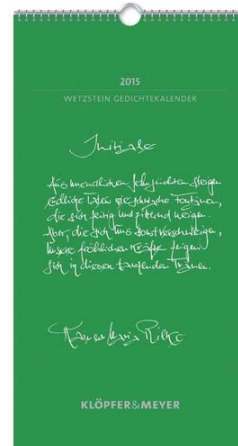 2015
WETZSTEIN GEDICHTEKALENDER
Initiale
Aus unendlichen Sehnsüchten steigen
endliche Taten wie schwache Fontänen,
die sich zeitig und zitternd neigen.
Aber, die sich uns sonst verschweigen,
unsere fröhlichen Kräfte zeigen
sich in diesen tanzenden Tränen.
Rainer Maria Rilke
KLÖPFER&MEYER